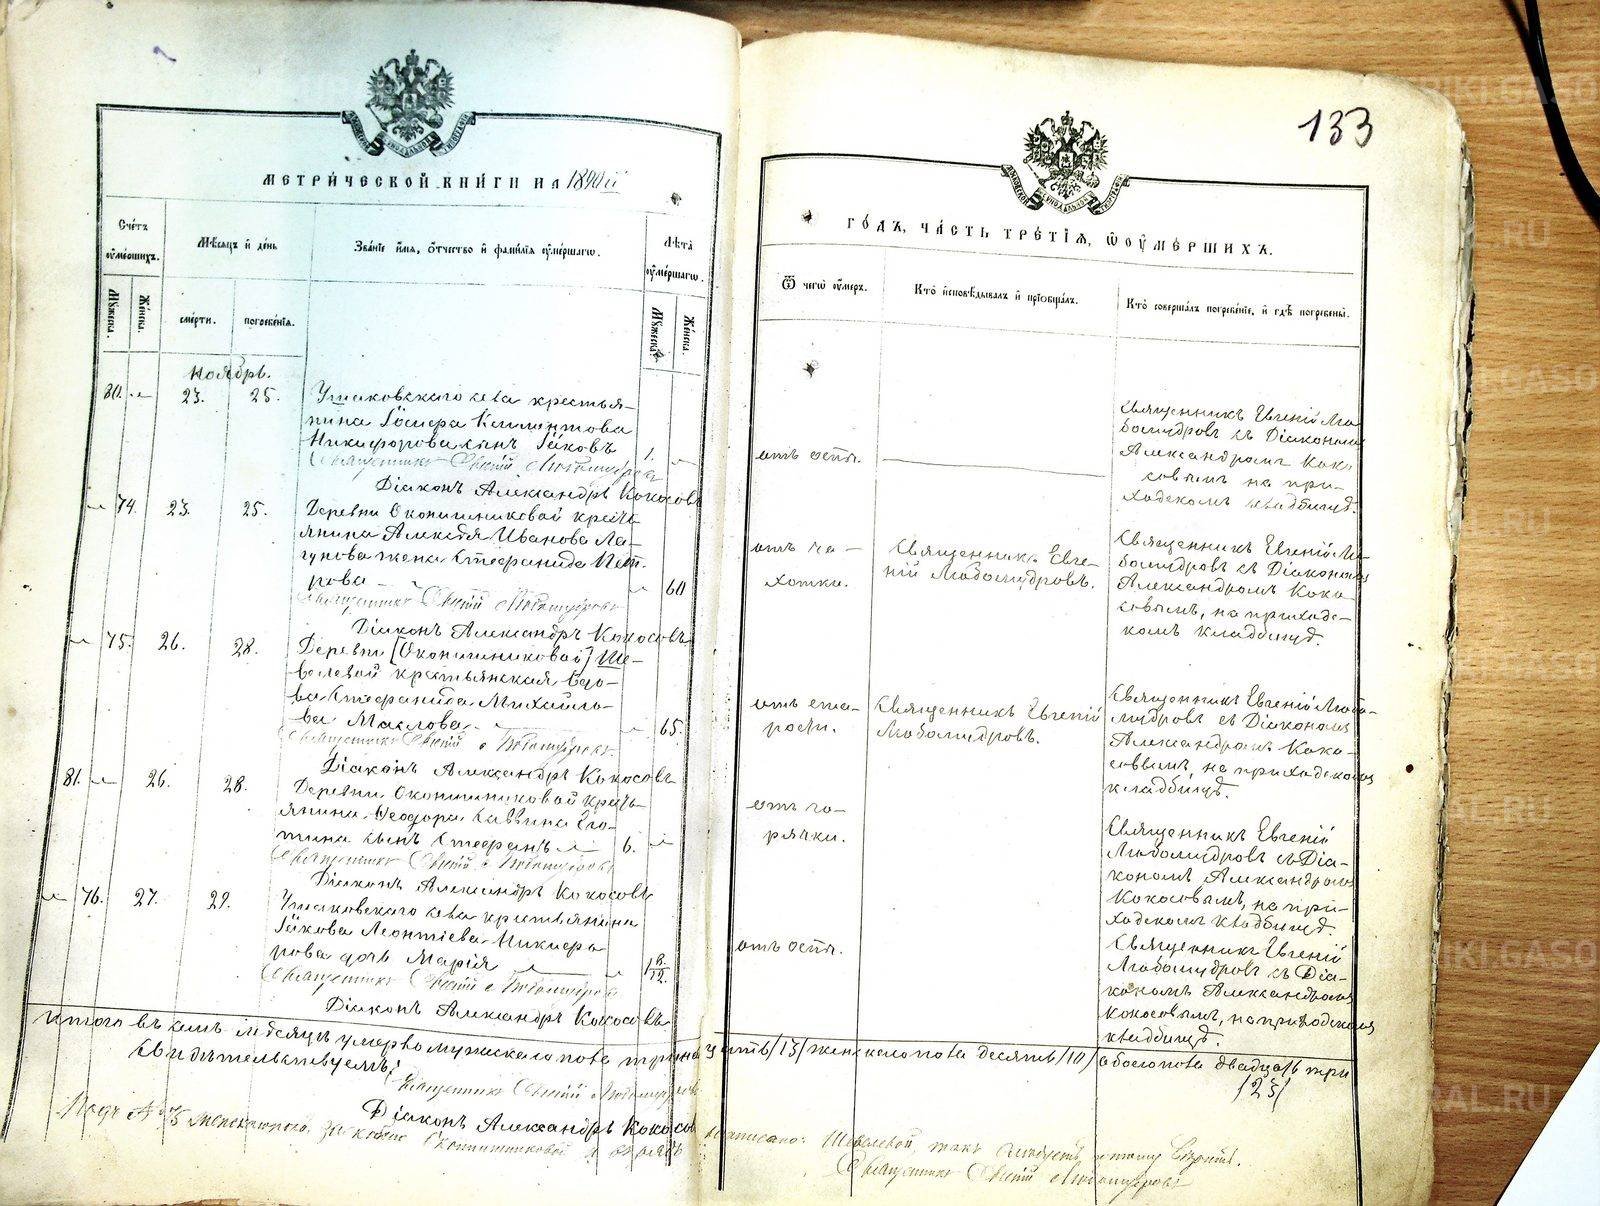 133
МЕТРИЧЕСКОЙ КНИГИ НА 1890й
ГОДЪ, ЧАСТЬ ТРЕТІЯ, Ѡ ОУМЕРШИХЪ.
Счетъ оумершихъ.
Мѣсяцъ и день
Званіе имя, отчество и фамилія оумершаго.
Лѣта оумершаго.
Мужеска.
Женска.
смерти.
погребенія.
Мужеска.
Женска.
Ѿ чего оумеръ.
Кто исповѣдывалъ и пріобщалъ.
Кто совершалъ погребеніе, и гдѣ погребены.
Ноябрь.
80. 23. 25.
Ушаковскаго села крестья-
нина Іосифа Климонтова
Никифорова сынъ Іаковъ 1.
Священникъ Евгеній Любомудровъ
Діаконъ Александръ Кокосовъ
отъ оспы.
Священникъ Евгеній Лю-
бомудровъ съ Діакономъ
Александромъ Коко-
совымъ на при-
ходскомъ кладбищѣ.
74. 23. 25.
Деревни Оконишниковой кресть-
янина Алексѣя Иванова Ла-
гунова жена Стефанида Пет-
рова 60
Священникъ Евгеній Любомудровъ
Діаконъ Александръ Кокосовъ
отъ ча-
хотки.
Священникъ Евге-
ній Любомудровъ.
Священникъ Евгеній Лю-
бомудровъ съ Діакономъ
Александромъ Коко-
совымъ, на приходс-
комъ кладбищѣ.
75. 26. 28.
Деревни [Оконишниковой] Ше-
велевой крестьянская вдо-
ва Стефанида Михайло-
ва Маслова 65.
Священникъ Евгеній Любомудровъ
Діаконъ Александръ Кокосовъ
отъ ста-
рости.
Священникъ Евгеній
Любомудровъ.
Священникъ Евгеній Любо-
мудровъ съ Діакономъ
Александромъ Коко-
совымъ, на приходскомъ
кладбищѣ.
81. 26. 28.
Деревни Оконишниковой кресть-
янина Ѳеодора Саввина
сынъ Стефанъ 6.
Священникъ Евгеній Любомудровъ
Діаконъ Александръ Кокосовъ
отъ го-
рячки.
Священникъ Евгеній
Любомудровъ съ Діа-
кономъ Александромъ
Кокосовымъ, на при-
ходскомъ кладбищѣ.
76. 27. 29.
Ушаковскаго села крестьянина
Іакова Леонтіева Никифо-
рова дочь Марія 1 8/12.
Священникъ Евгеній Любомудровъ
Діаконъ Александръ Кокосовъ
отъ оспы.
Священникъ Евгеній
Любомудровъ съ Діа-
кономъ Александромъ
Кокосовымъ, на приходскомъ
кладбищѣ.
Итого въ семъ мѣсяцѣ умерло мужескаго пола тринадцать /13/ женскаго пола десять /10/ обоего пола двадцать три
/23/
Свидѣтельствуемъ:
Священникъ Евгеній Любомудровъ
Діаконъ Александръ Кокосовъ
Подъ № 75 зачеркнутаго, въ скобкахъ Оконишниковой, а сверху написано: Шевелевой, такъ слѣдуетъ и тому вѣрить.
Священникъ Евгеній Любомудровъ